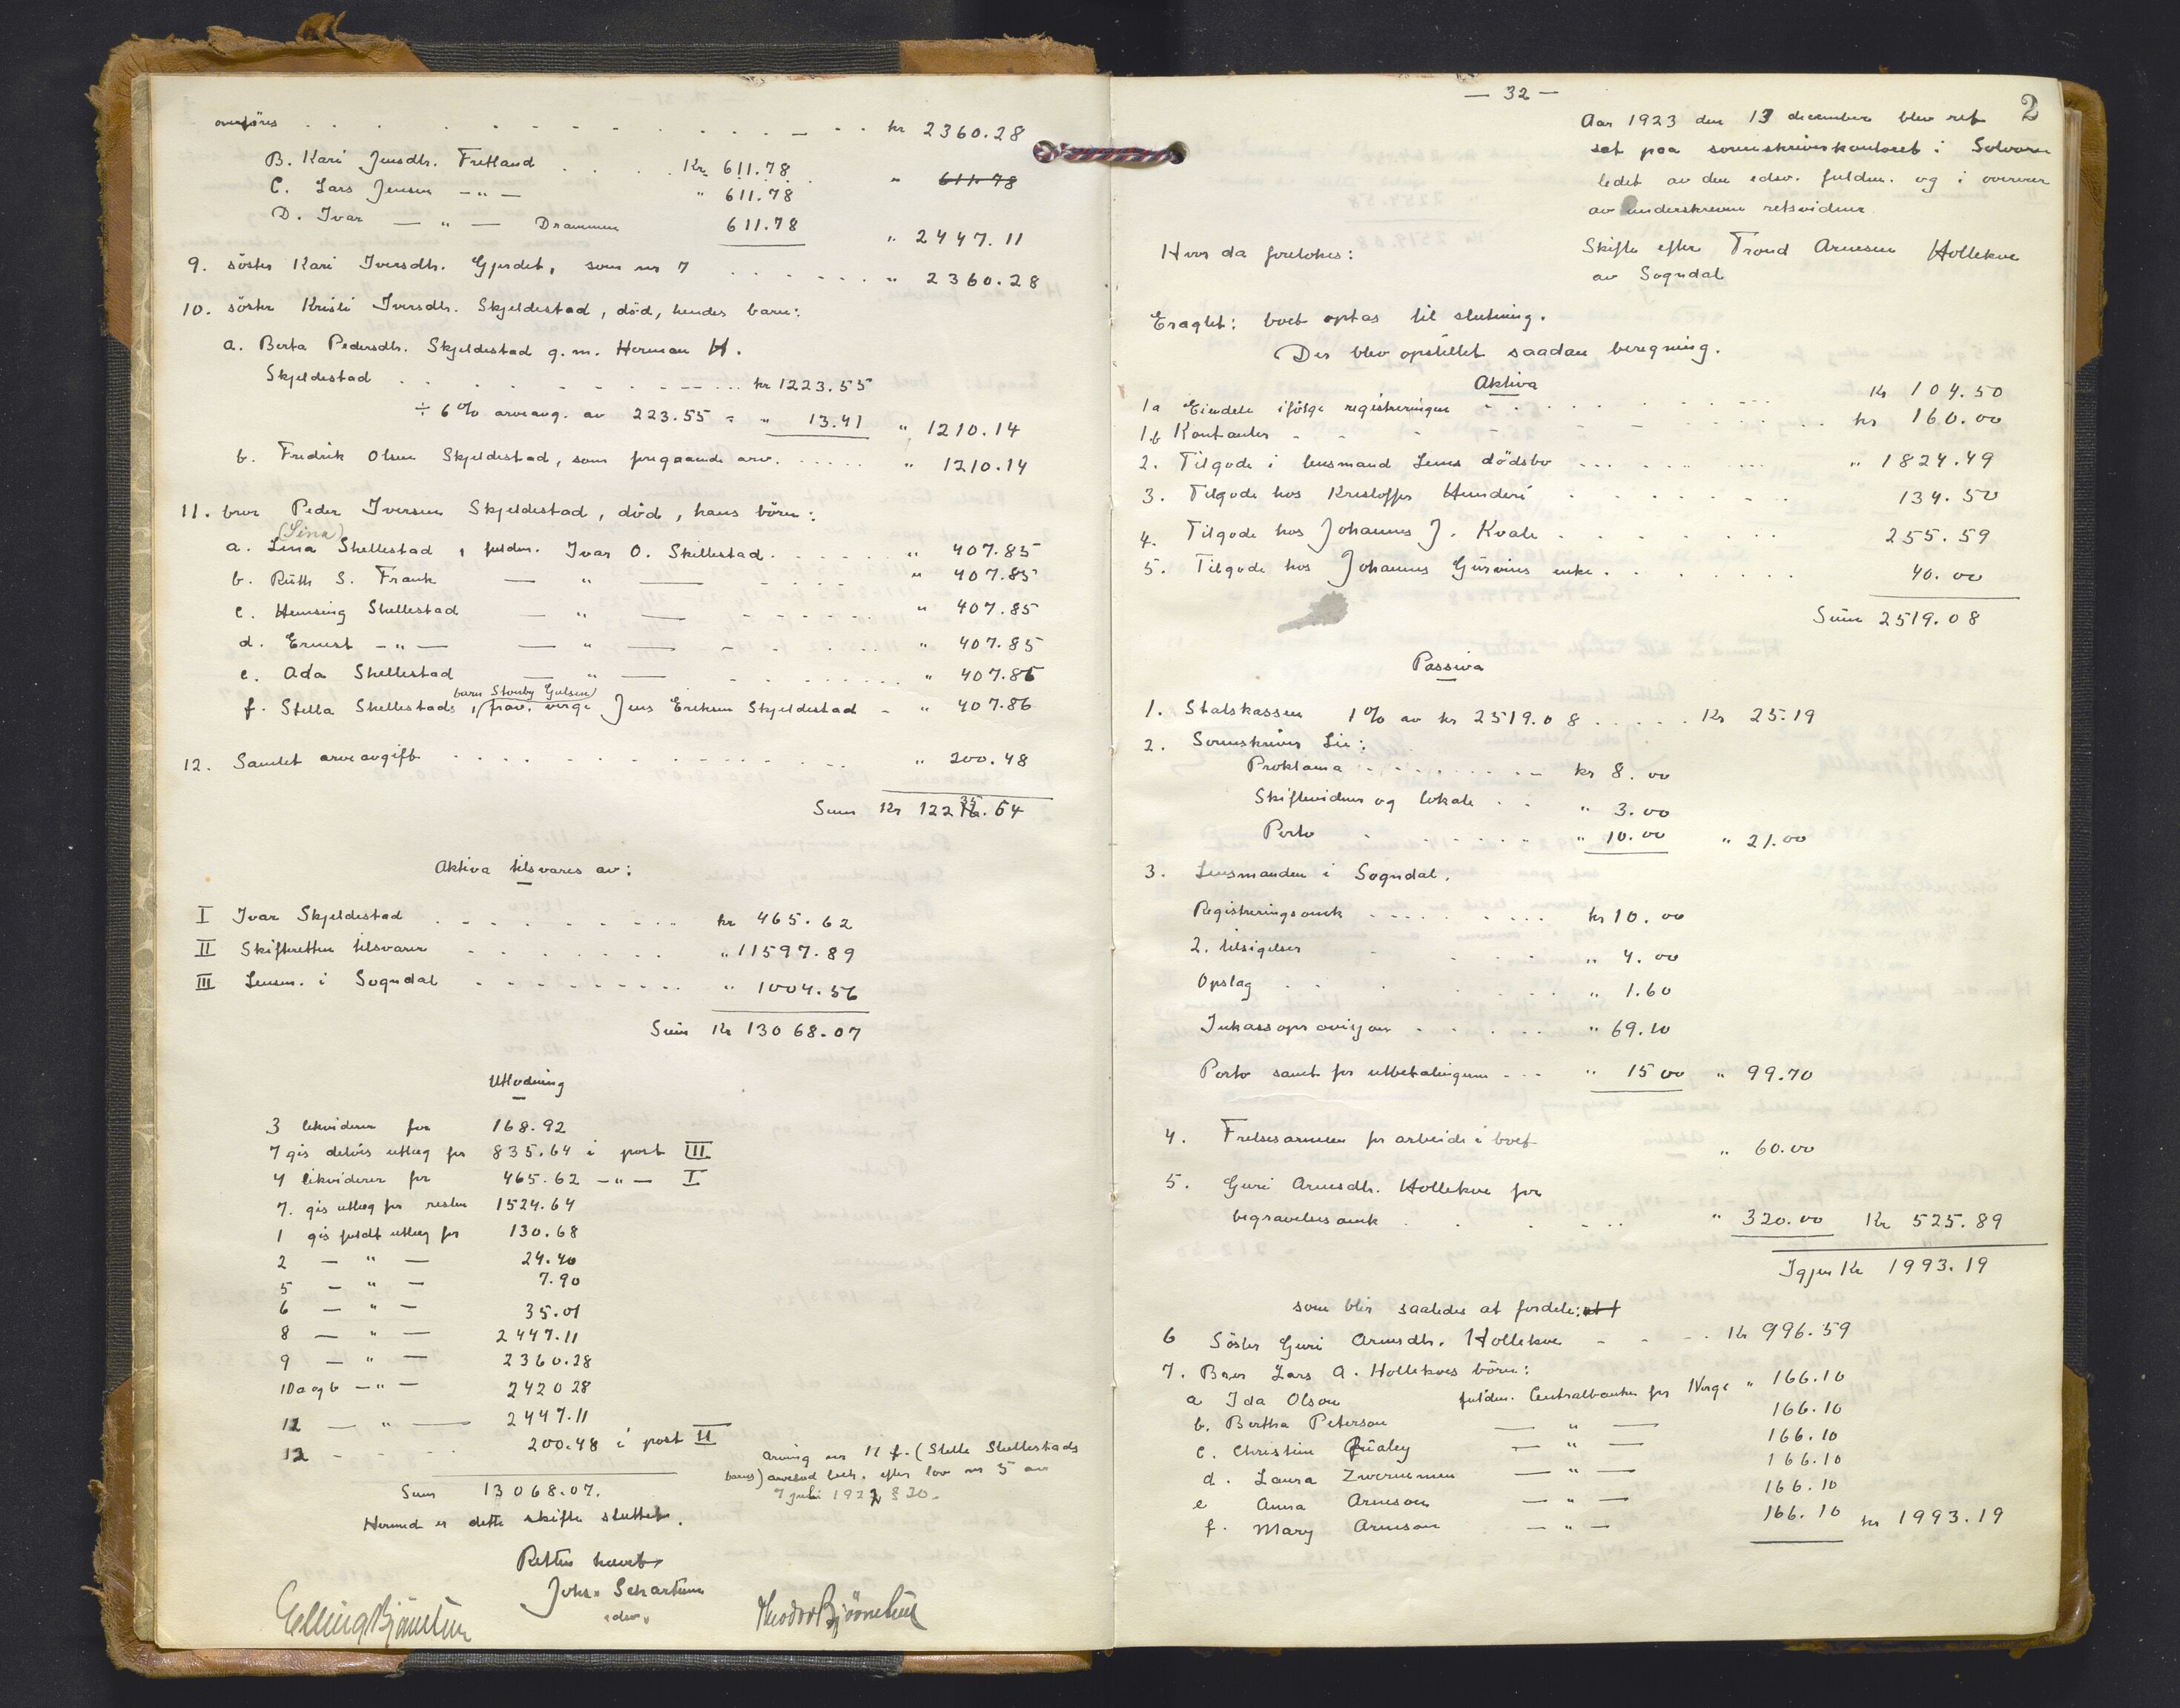 overføres . . . . . . . . . . . . . kr 2360.28
B. Kari Jensdtr. Fretland . . . . Kr. 611.78
C. Lars Jensen — " — " 611.78 " 611.78
D. Ivar — " — Drammen 611.78 " 2447.11
9. söster Kari Iversdtr. Gjerdet, som nr 7 . . . . . . " 2360.28
10. söster Kristi Iversdtr. Skjeldestad, död, hendes barn:
a. Berta Pedersdtr. Skjeldestad g. m. Herman H.
Skjeldestad . . . . . . . . . kr 1223.55
÷ 6% arveavg. av 223.55 = " 13.41 " 1210.14
b. Fredrik Olsen Skjeldestad, som foregaaende arv. . . . . . " 1210.14
11. bror Peder Iversen Skjeldestad, död, hans börn:
(Sina)
a. Lina Skellestad, fuldm. Ivar O. Skellestad. . . . . . " 407.85
b. Ruth S. Frank — " — . . . . " 407.85
c. Hemsing Skellestad — " — . . . . . " 407.85
d. Ernest — " — — " — . . . . " 407.85
e. Ada Skellestad — " — . . . . . . " 407.86
f. Stella Skellestads barn Stenby Gulsen, frav. verge Jens Eriksen Skjeldestad - " 407.86
12. Samlet arveavgift . . . . . . . . . . . . " 200.48
Sum Kr 12235.54
Aktiva tilsvares av:
I Ivar Skjeldestad . . . . . . . . kr 465.62
II Skifteretten tilsvarer . . . . . . " 11597.89
III Lensm. i Sogndal . . . . . . . . " 1004.56
Sum Kr 13068.07
Utlodning
3 likviderer for 168.92
7 gis delvis utlæg for 835.64 i post III
4 likviderer for 465.62 — " — I
7. gis utlæg for resten 1524.64
1 gis fuldt utlæg for 130.68
2 — " — 24.40
5 — " — 7.90
6 — " — 35.01
8 — " — 2447.11
9 — " — 2360.28
10 a og b — " — 2420 28
11 — " — 2447.11
12 - - - - 200.48 i post II
Sum 13068.07.
Arving nr 11 f. (Stella Skellestads
barns) arvelod beh. efter lov nr 5 av
7 juli 1922 § 20.
Hermed er dette skifte sluttet.
Retten hævet
Johs. Schartum
edsv.
Elling Bjørnetun Theodor Bjørnetun
— 32 — 2
Aar 1923 den 13 december blev ret
sat paa sorenskriverkontoret i Solvorn
ledet av den edsv. fuldm. og i overvær
av underskrevne retsvidner.
Hvor da foretokes: Skifte efter Trond Arnesen Hollekve
av Sogndal
Eragtet: boet optas til slutning.
Der blev opstillet saadan beregning.
Aktiva
1a Eiendele ifölge registreringen . . . . . . . Kr 104.50
1b Kontanter - - - - . . . . . . kr 160.00
2. Tilgode i lensmand Lems dödsbo . . . . . . . . " 1824.49
3. Tilgode hos Kristoffer Hunderi . . . . . . . 134.50
4. Tilgode hos Johannes J. Kvale . . . . . . . 255.59
5. Tilgode hos Johannes Gurvins enke. . . . . . . . 40.00
Sum 2519.08
Passiva
1. Statskassen 1% av kr 2519.08 . . . . . Kr 25.19
2. Sorenskriver Lie:
Proklama . . . . . . . . . kr 8.00
Skiftevidner og lokale . . " 3.00
Porto . . . . . . " 10.00 " 21.00
3. Lensmanden i Sogndal.
Registreringsomk . . . . . . . . kr 10.00
2. tilsigelser . . . . " 4.00
Opslag . . . . . . . . " 1.60
Inkassoprovisjon . . . . . . " 69.10
Porto samt for utbetalingen - - - " 15 00 " 99.70
4. Frelsesarmeen for arbeide i boet " 60.00
5. Guri Arnesdtr. Hollekve for
begravelsesomk . . . . . . " 320.00 Kr 525.89
Igjen Kr 1993.19
som blir saaledes at fordele:
6 Söster Guri Arnesdtr. Hollekve - - - . Kr 996.59
7. Bror Lars A. Hollekves börn:
a Ida Olson fuldm. Centralbanken for Norge " 166.10
b. Bertha Peterson — " — 166.10
c. Christin — " — 166.10
d. Laura — " — 166.10
e Anna Arneson — " — 166.10
f. Mary Arneson — " — 166.10 kr 1993.19